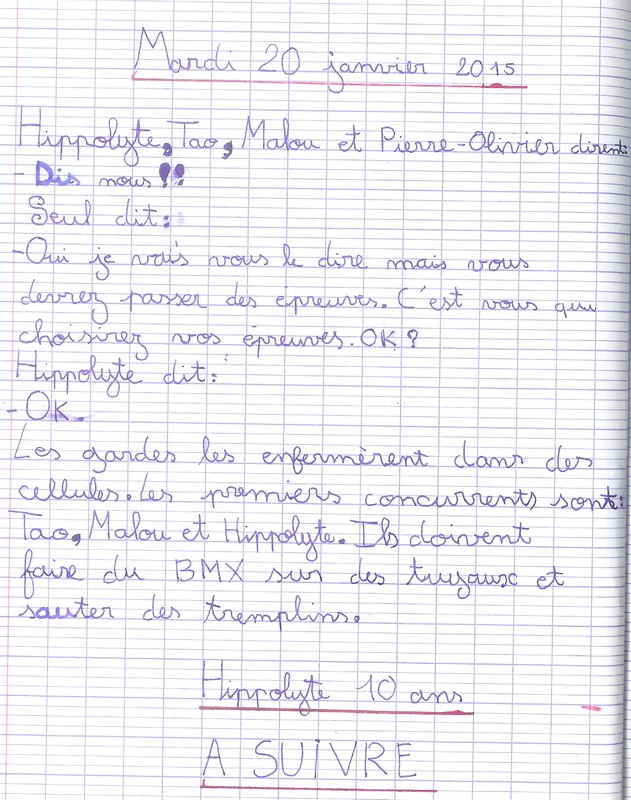 Mardi 20 janvier 2015
Hippolyte, Tao, Malou et Pierre-Olivier dirent:
- Dis nous !!
Seul dit:
- Oui je vais vous le dire mais vous
devrez passer des épreuves. C'est vous qui
choisirez vos épreuves. OK ?
Hippolyte dit:
- OK.
Les gardes les enfermèrent dans des
cellules. Les premiers concurrents sont:
Tao, Malou et Hippolyte. Ils doivent
faire du BMX sur des tuyaux et
sauter des tremplins.
Hippolyte 10 ans
A SUIVRE